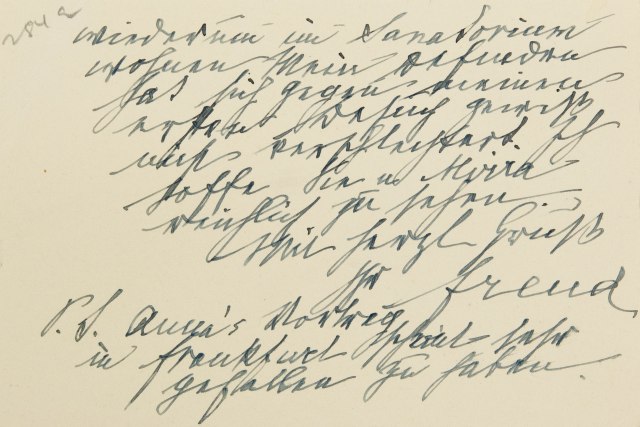 284 a
wiederum im Sanatorium
wohnen. Mein Befinden
hat sich gegen meinen
ersten Besuch gewiß
nicht verschlechtert. Ich
hoffe Sie u Mirra
reichlich zu sehen.
Mit herzl Gruß
Ihr Freud
P. S. Anna's Vortrag
in Frankfurt scheint sehr
gefallen zu haben.